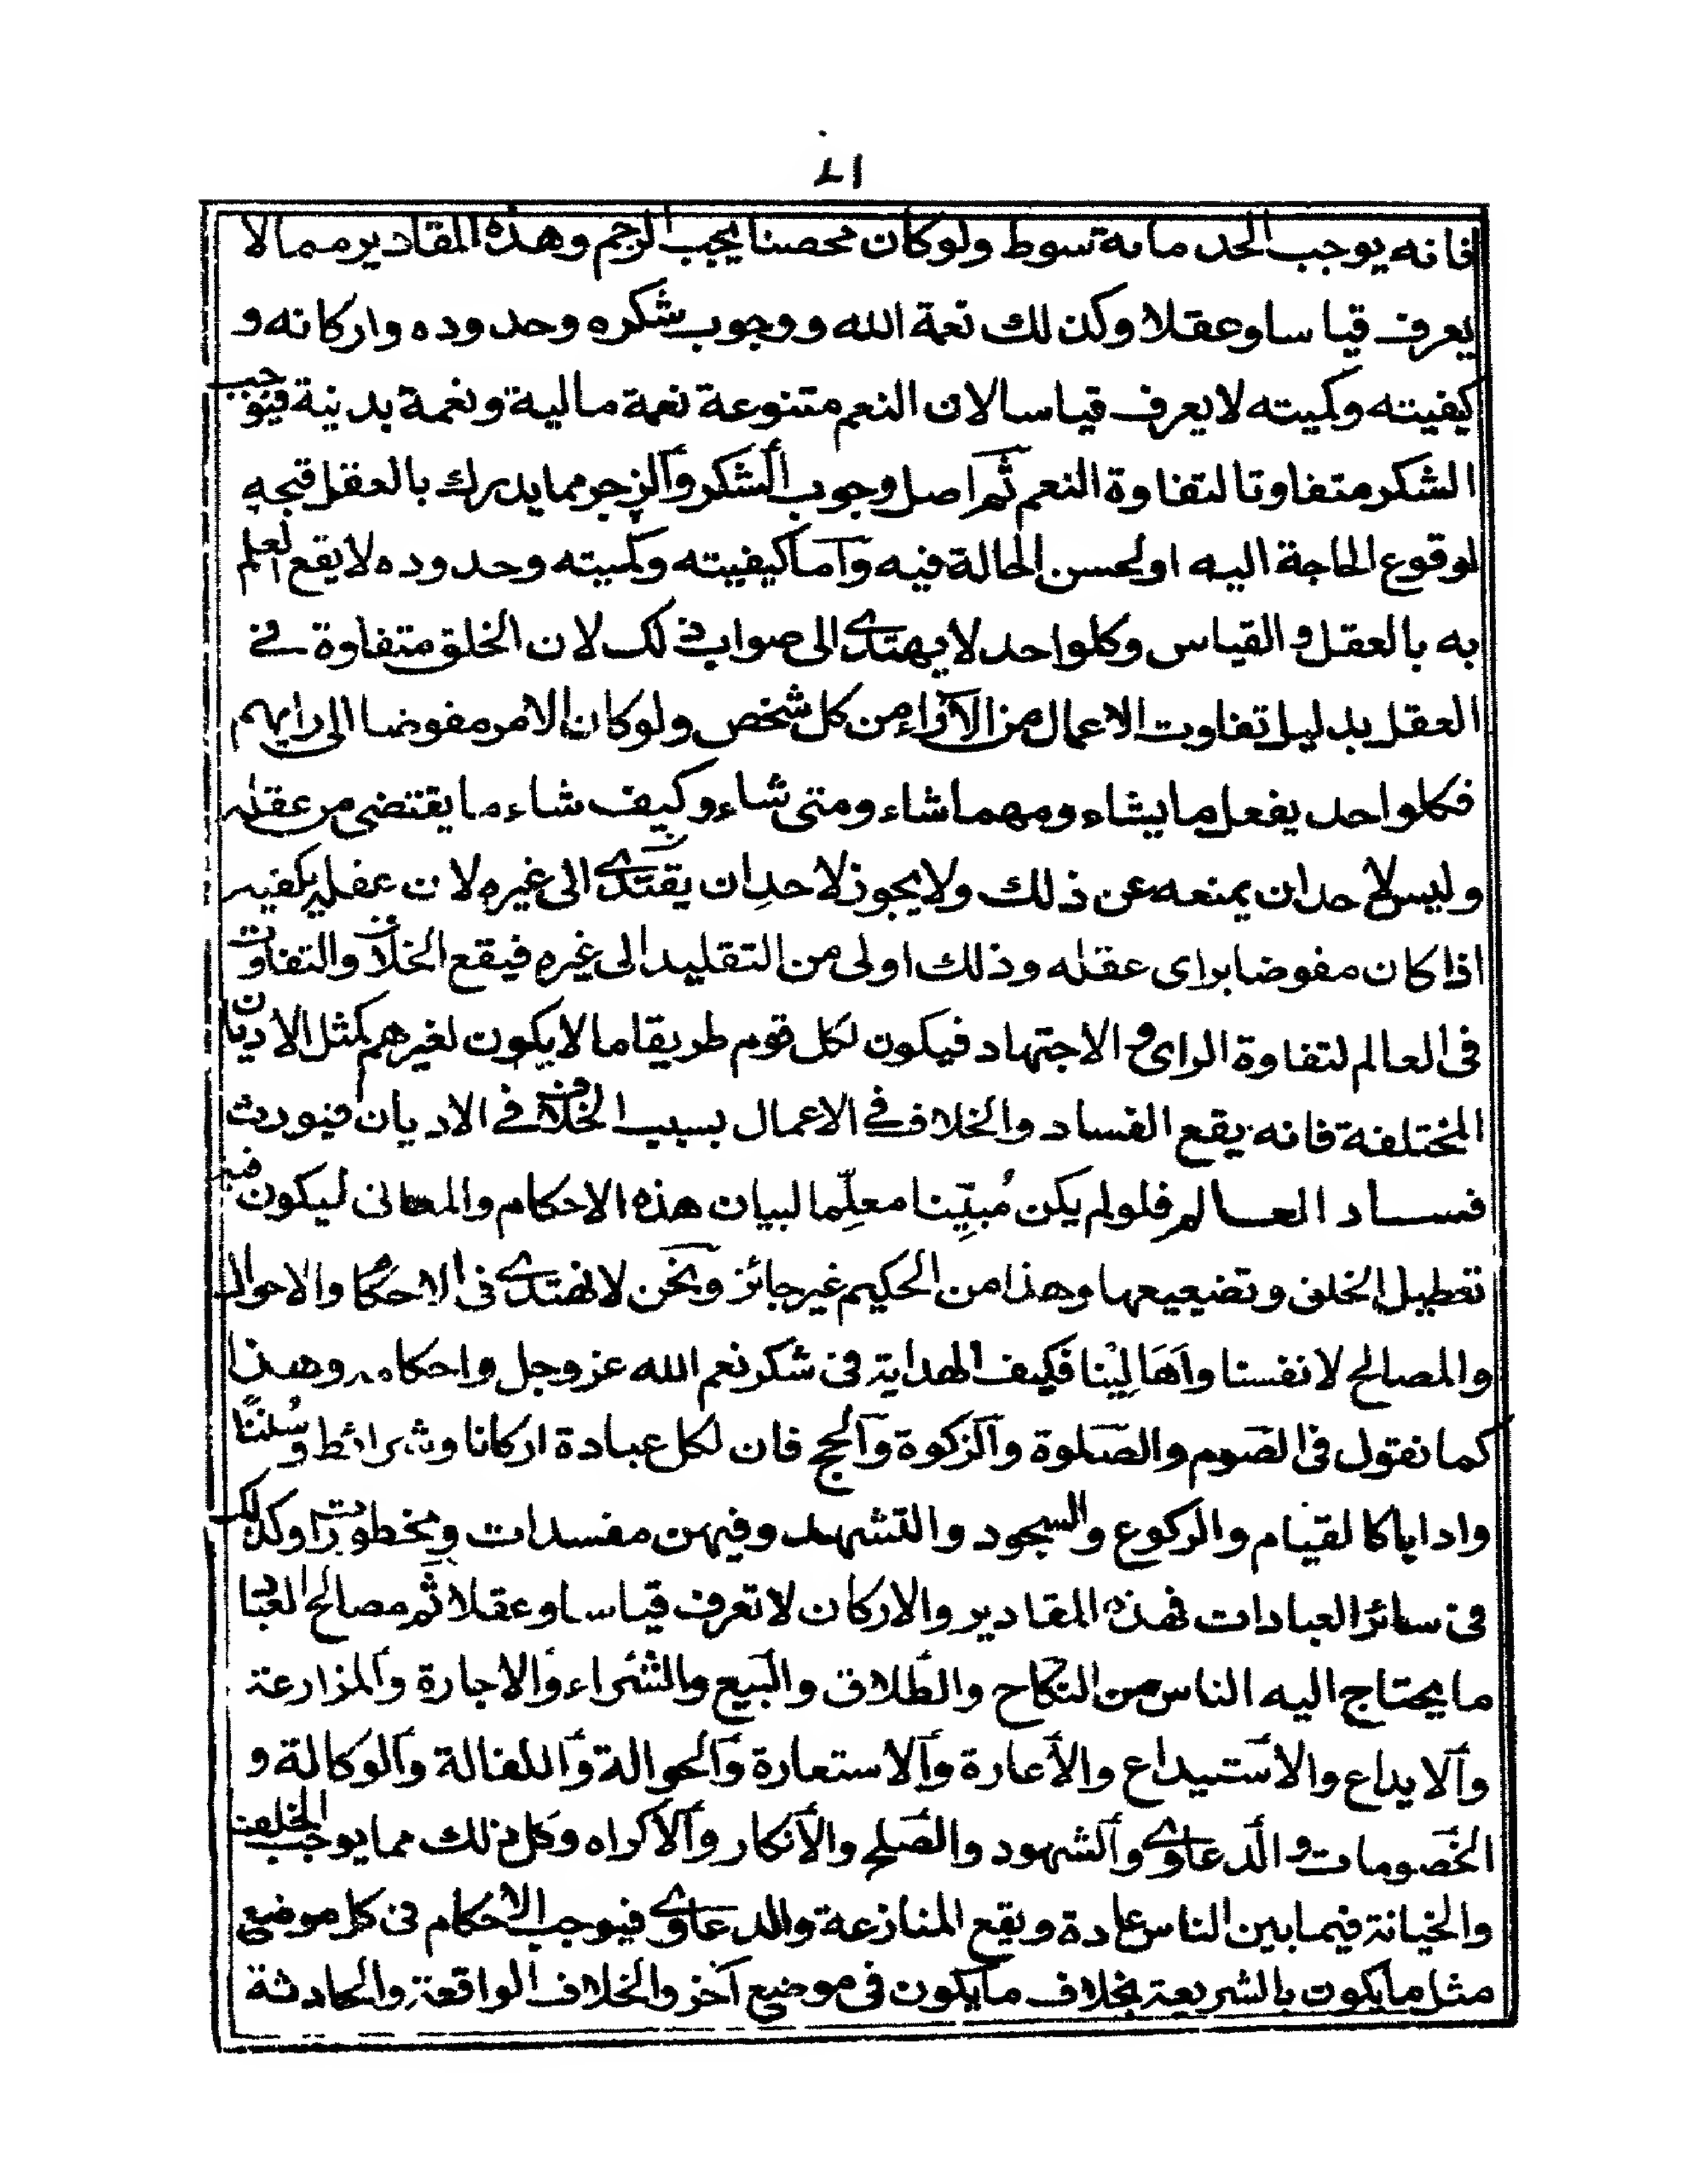 ١٦
فانه يوجب الحد ماىة سوط ولو كان محصنا يجب الرجم وهذه المقادير مما لا
يعرف قياسا وعقلا وكذلك نعمة الله ووجوب شكره وحدوده واركانه و
كيفيته وكميته لا يعرف قياسا لان النعم متنوعة نعمة مالية ونعمة بدنية فيوجب
الشكر متفاوتا لتفاوة النعم ثم اصل وجوب الشكر والزجر مما يدرك بالعقل قبحه
لوقوع الحاجة اليه او لحسن الحالة فيه واما كيفيته وكميته وحدوده لا يقع العلم
به بالعقل والقياس وكلواحد لا يهتدى الى صواب ذلك لان الخلق متفاوة فى
العقل بدليل تفاوت الاعمال من الآراء من كل شخص ولو كان الامر مفوضا الى رايهم
فكلواحد يفعل ما يشاء ومهما شاء ومتى شاء وكيف شاء ما يقتضى من عقله
وليس لاحد ان يمنعه عن ذلك ولا يجوز لاحد ان يقتدى الى غيره لان عقله يكفيه
اذا كان مفوضا براى عقله وذلك اولى من التقليد الى غيره فيقع الخلاف والتفاوت
فى العالم لتفاوة الراى والاجتهاد فيكون لكل قوم طريقا ما لا يكون لغيرهم كمثل الاديان
المختلفة فانه يقع الفساد والخلاف فى الاعمال بسبب الخلاف فى الاديان فيورث
فساد العالم فلو لم يكن مُبيِّنا معلِّما لبيان هذه الاحكام والمعانى ليكون فيه
تعطيل الخلق وتضييعها وهذا من الحكيم غير جائز ونحن لا نهتدى فى الاحكام والاحوال
والمصالح لانفسنا وآهَالِيْنا فكيف الهداية فى شكر نعم الله عز وجل واحكامه وهذا
كما نقول فى الصوم والصلوة والزكوة والحج فان لكل عبادة اركانا وشرائط وسُننًا
وادابا كالقيام والركوع والسجود والتشهد وفيهن مفسدات ومخطورات وكذلك
فى سائر العبادات فهذه المقادير والاركان لا تعرف قياسا وعقلا ثم مصالح العباد
ما يحتاج اليه الناس من النكاح والطلاق والبيع والشراء والاجارة والمزارعة
والايداع والاستيداع والأعارة والاستعارة والحوالة واللفالة والوكالة و
الخصومات والدعاوى والشهود والصلح والأنكار والأكراه وكل ذلك مما يوجب الخلف
والخيانة فيما بين الناس عادة ويقع المنازعة والدعاوى فيوجب الاحكام فى كل موضع
مثل ما يكون بالشريعة بخلاف ما يكون فى موضع آخر والخلاف الواقعة والحادثة